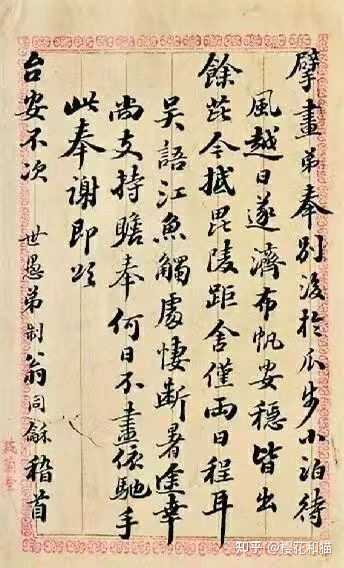 擘畫弟奉別後於瓜步小泊待
風越日遂濟布帆安穩皆出
餘芘今抵毘陵距舍僅兩日程耳
吳語江魚觸處悽斷暑途幸
尚支持瞻奉何日不盡依馳手
此奉謝即頌
台安不次
世愚弟制翁同龢稽首
知乎 @樱花和猫